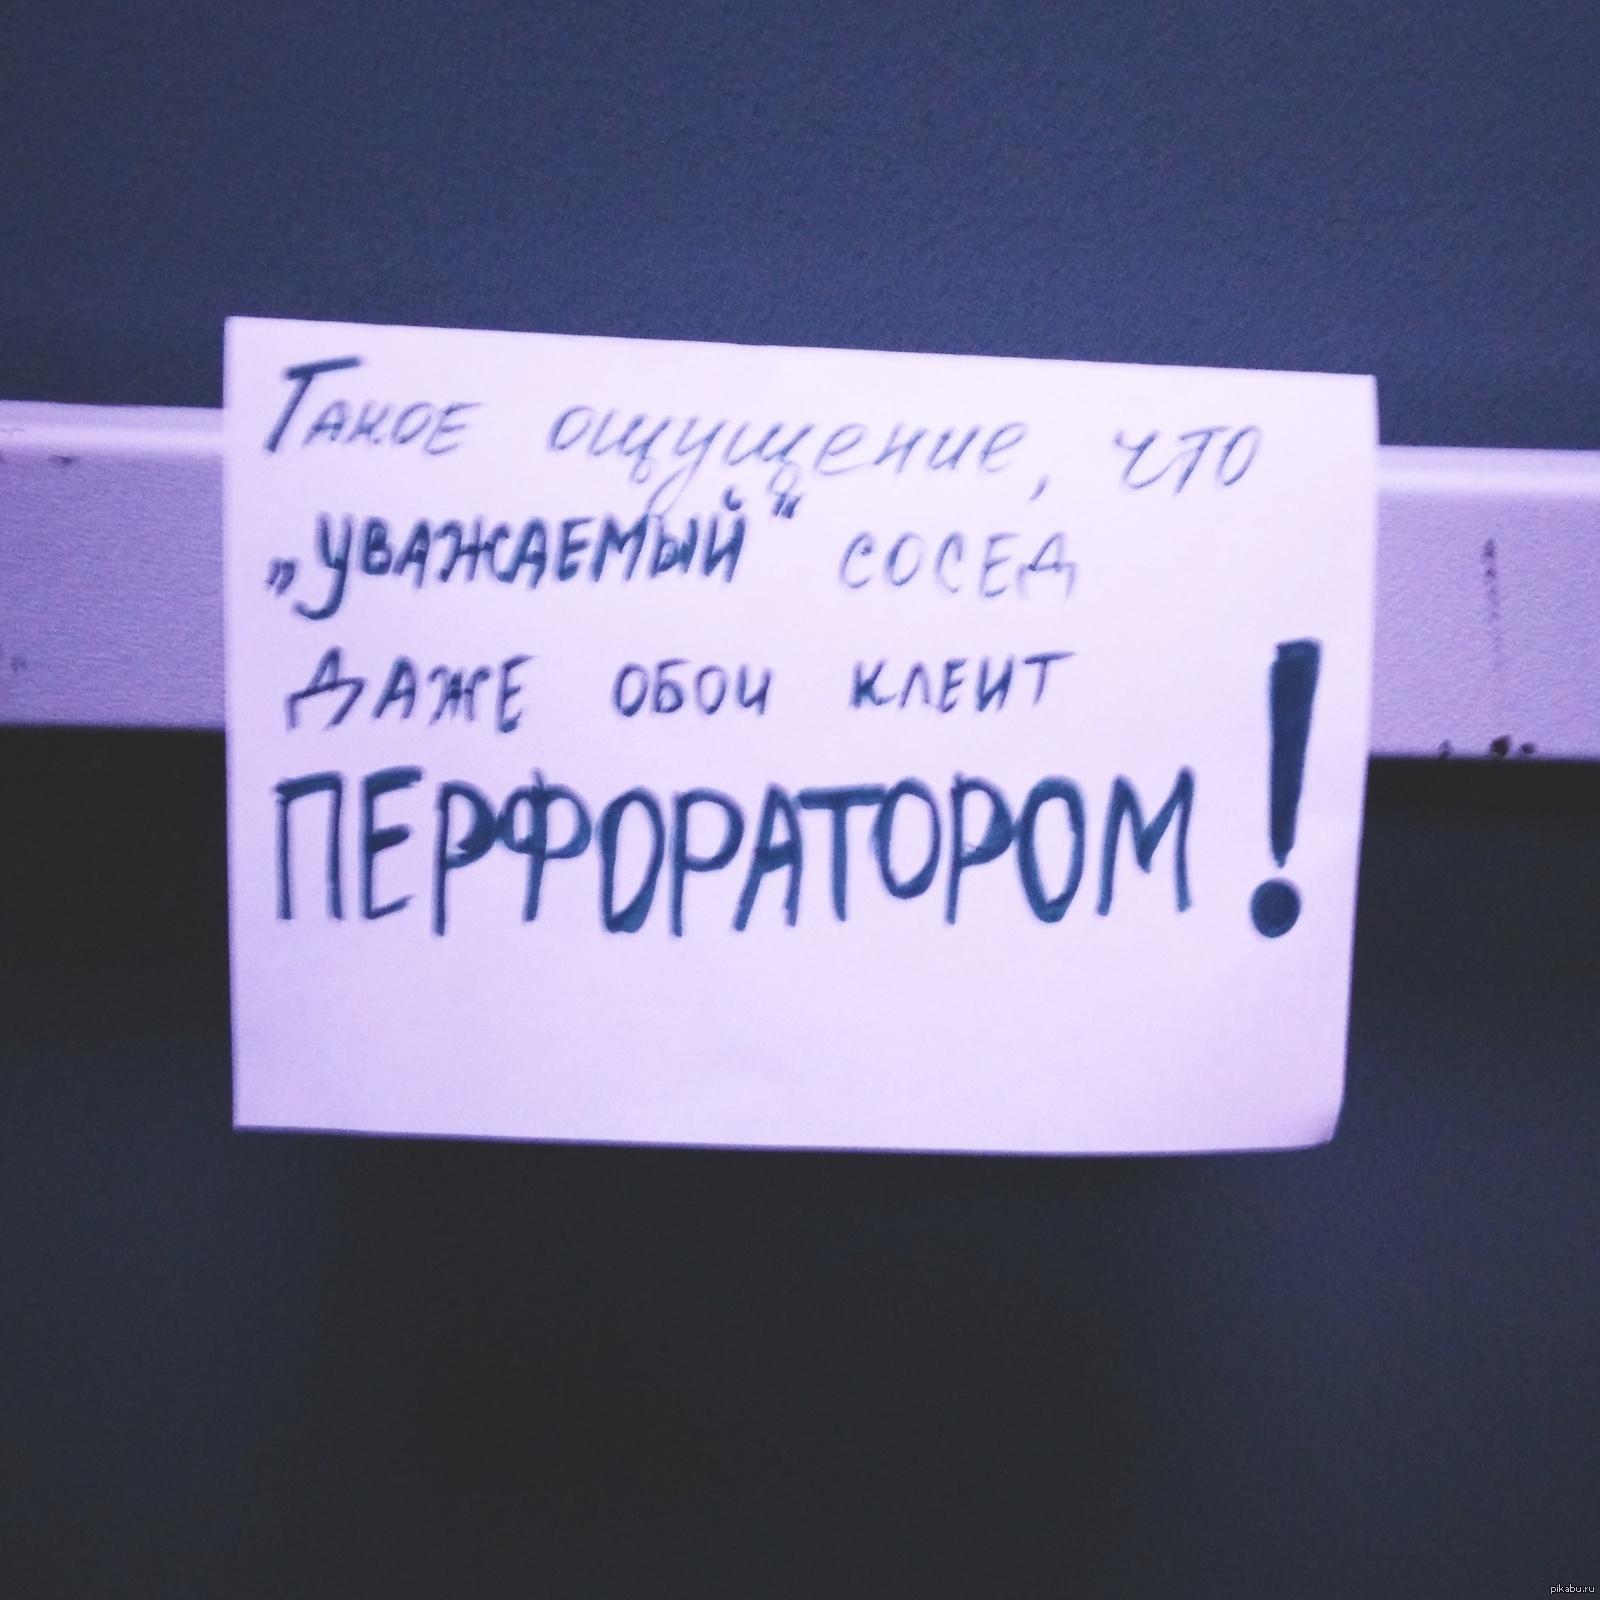 Такое ощущение, что
„уважаемый“ сосед
даже обои клеит
ПЕРФОРАТОРОМ!
pikabu.ru